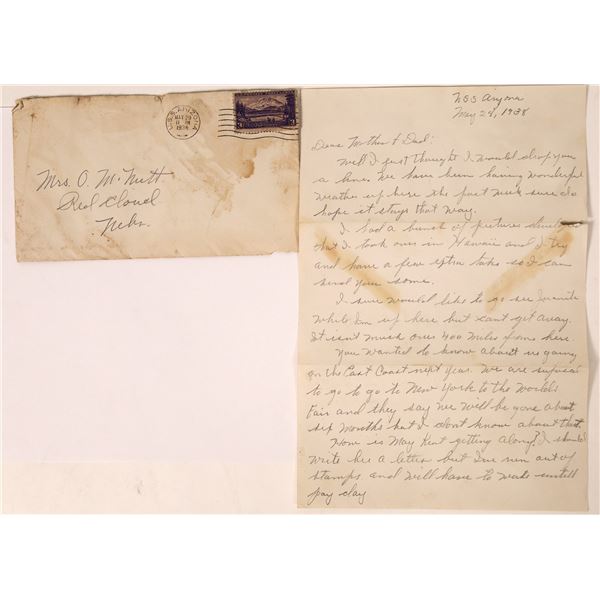 U.S.S. ARIZONA
MAY 29
1938
Mrs. O. McNutt
Red Cloud
Nebr.
U.S.S. Arizona
May 29, 1938
Dear Mother & Dad:
Well I just thought I would drop you
a line. We have been having wonderful
weather up here the past week sure do
hope it stays that way.
I had a bunch of pictures developed
that I took over in Hawaii and I try
and have a few extra taken so I can
send you some.
I sure would like to go see Juanita
while I'm up here but xant get away.
It isn't much over 400 miles from here.
You wanted to know about us going
on the East Coast next year. We are suposed
to go to go to New York to the Worlds
Fair and they say we will be gone about
six months but I dont know about that.
How is May Kent getting along? I should
write her a letter but I've run out of
stamps and will have to wait untill
pay day